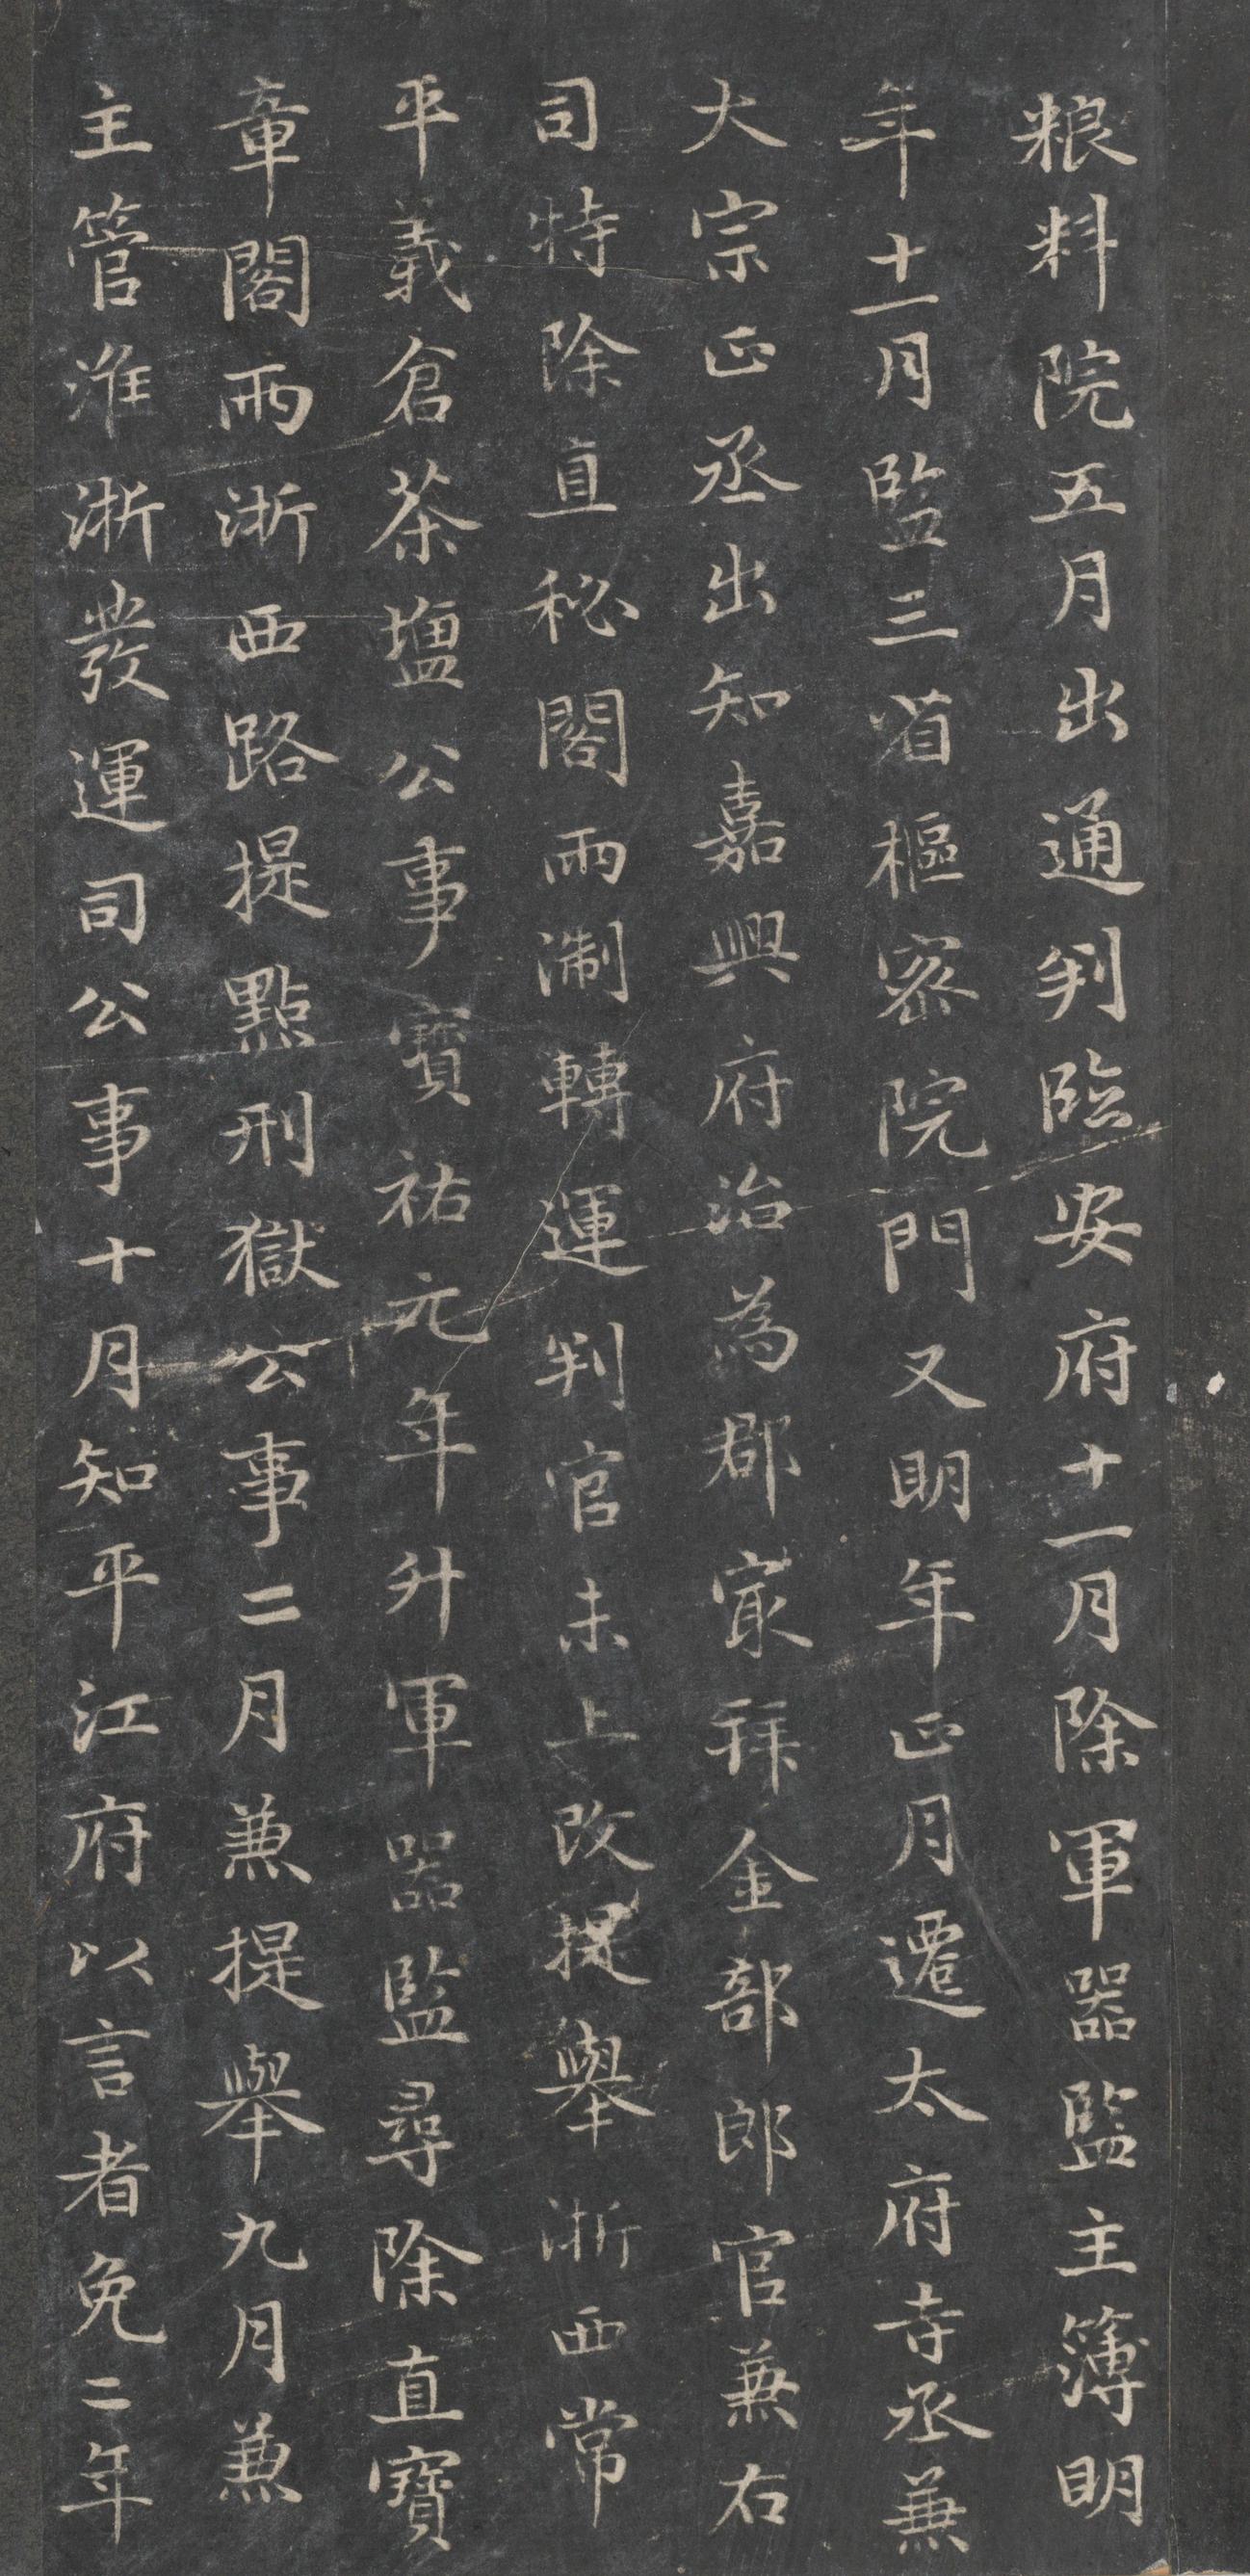 粮料院五月出通判臨安府十一月除軍器監主簿明
年十一月監三省樞密院門又明年正月遷太府寺丞兼
大宗正丞出知嘉興府治為郡冣拜金部郎官兼右
司特除直秘閣兩淛轉運判官未上改提舉浙西常
平義倉茶塩公事寶祐元年升軍器監尋除直寶
章閣兩浙西路提點刑獄公事二月兼提舉九月兼
主管淮浙發運司公事十月知平江府以言者免二年